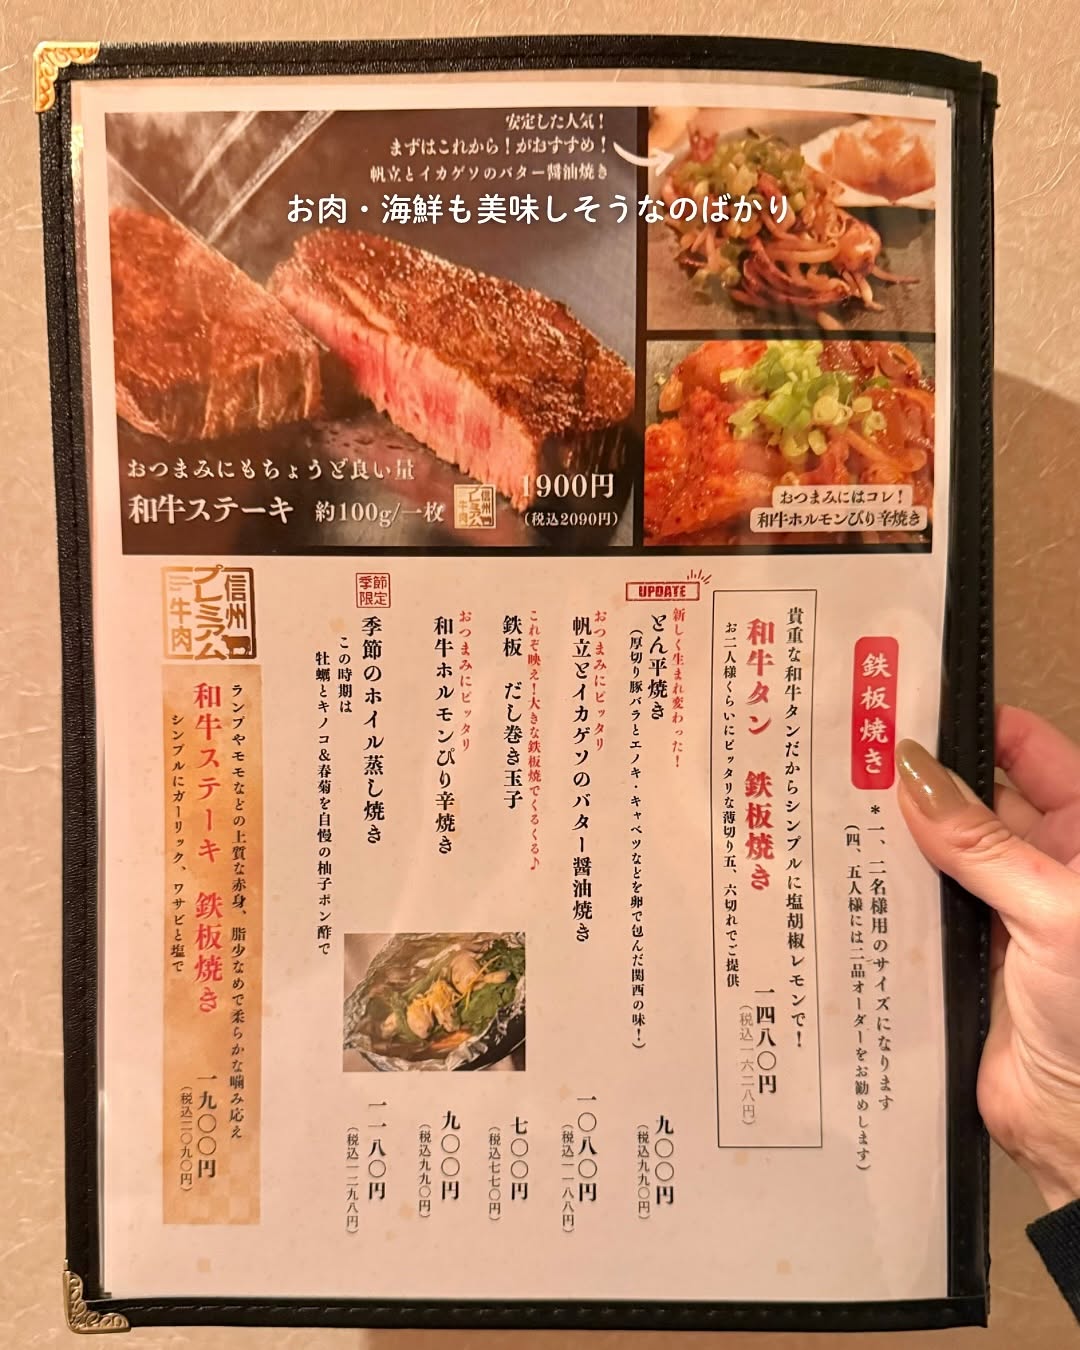 安定した人気！
まずはこれから！がおすすめ！
帆立とイカゲソのバター醤油焼き
お肉・海鮮も美味しそうなのばかり
おつまみにもちょうど良い量
和牛ステーキ 約100g/一枚
信州プレミアム牛肉
1900円
（税込2090円）
おつまみにはコレ！
和牛ホルモンぴり辛焼き
鉄板焼き
＊一、二名様用のサイズになります
（四、五人様には二品オーダーをお勧めします）
貴重な和牛タンだからシンプルに塩胡椒レモンで！
和牛タン 鉄板焼き
お二人様くらいにピッタリな薄切り五、六切れでご提供
一四八〇円
（税込一六二八円）
UPDATE
新しく生まれ変わった！
とん平焼き
（厚切り豚バラとエノキ・キャベツなどを卵で包んだ関西の味！）
九〇〇円
（税込九九〇円）
おつまみにピッタリ
帆立とイカゲソのバター醤油焼き
一〇八〇円
（税込一一八八円）
これぞ映え！大きな鉄板焼でくるくる♪
鉄板 だし巻き玉子
七〇〇円
（税込七七〇円）
おつまみにピッタリ
和牛ホルモンぴり辛焼き
九〇〇円
（税込九九〇円）
季節限定
季節のホイル蒸し焼き
この時期は
牡蠣とキノコ＆春菊を自慢の柚子ポン酢で
一一八〇円
（税込一二九八円）
信州プレミアム牛肉
ランプやモモなどの上質な赤身、脂少なめで柔らかな噛み応え
和牛ステーキ 鉄板焼き
シンプルにガーリック、ワサビと塩で
一九〇〇円
（税込二〇九〇円）